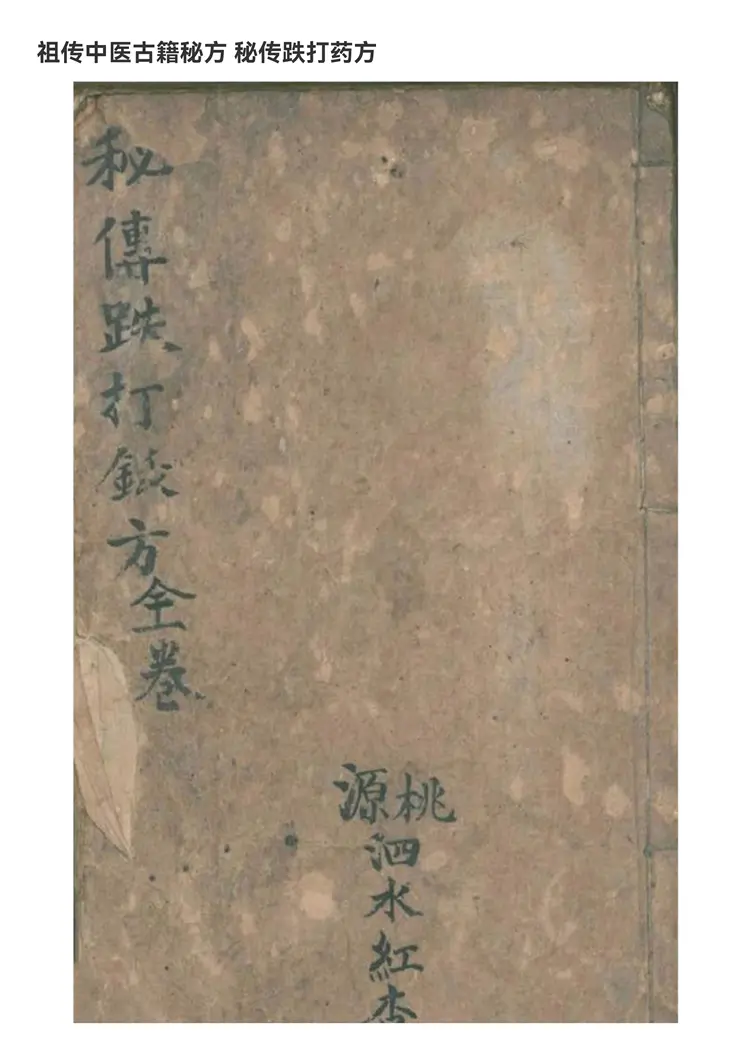 祖传中医古籍秘方 秘传跌打药方
秘傳跌打方全卷
桃源
泗水紅